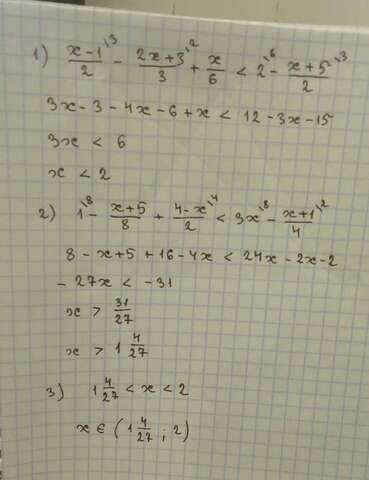 1) \frac{x-1}{2}^{\backslash 3} - \frac{2x+3}{3}^{\backslash 2} + \frac{x}{6} < 2^{\backslash 6} - \frac{x+5}{2}^{\backslash 3}
3x - 3 - 4x - 6 + x < 12 - 3x - 15
3x < 6
x < 2
2) 1^{\backslash 8} - \frac{x+5}{8} + \frac{4-x}{2}^{\backslash 4} < 3x^{\backslash 8} - \frac{x+1}{4}^{\backslash 2}
8 - x + 5 + 16 - 4x < 24x - 2x - 2
- 27x < -31
x > \frac{31}{27}
x > 1\frac{4}{27}
3) 1\frac{4}{27} < x < 2
x ∈ (1\frac{4}{27} ; 2)